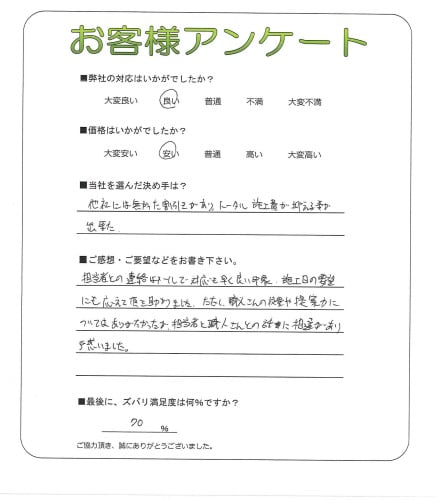 お客様アンケート
■弊社の対応はいかがでしたか?
大変良い 良い 普通 不満 大変不満
■価格はいかがでしたか?
大変安い 安い 普通 高い 大変高い
■当社を選んだ決め手は?
他社には無かった割引きがあり、トータル施工費が抑える事が
出来た
■ご感想・ご要望などをお書き下さい。
担当者との連絡はメールで対応も早く良い印象。施工日の要望
にも応えて頂き助かりました。ただし、職人さんの技量や提案力に
ついてはありがたかったが、担当者と職人さんとの話に相違があり
戸惑いました。
■最後に、ズバリ満足度は何%ですか?
70 %
ご協力頂き、誠にありがとうございました。